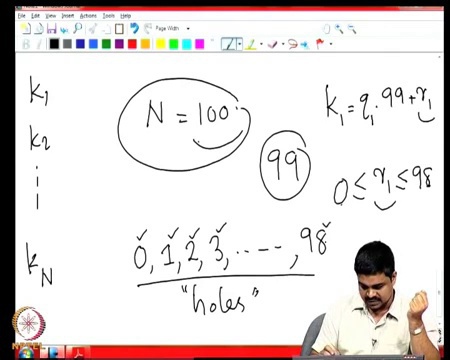 File Edit View Insert Actions Tools Help
Page Width
k₁
k₂
k_N
N = 100
99
k₁ = q₁·99 + r₁
0 ≤ r₁ ≤ 98
0, 1, 2, 3, ----, 98
"holes"